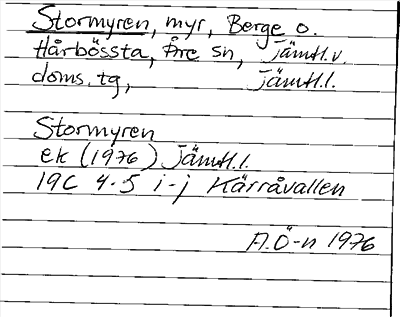 Stormyren, myr, Berge o.
Hårbössta, Åre sn, Jämtl. v.
doms. tg, Jämtl. l.
Stormyren
ek (1976) Jämtl. l.
19C 4-5 i-j Kärråvallen
A.Ö-n 1976